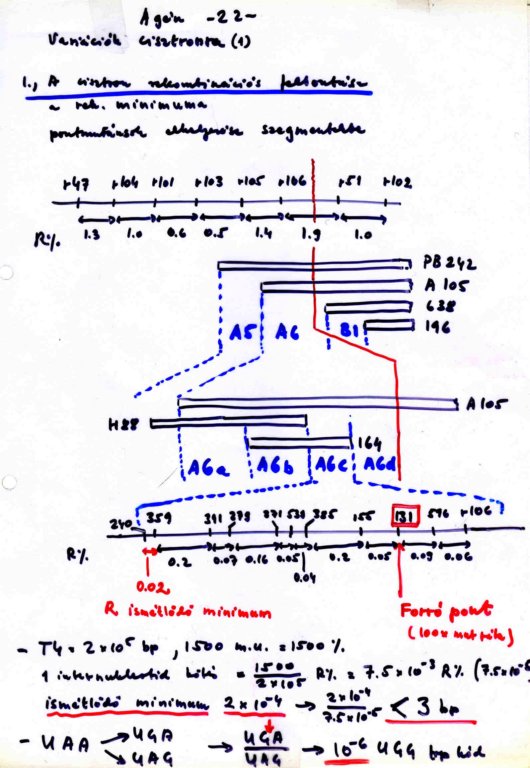 Ágón -22-
Variációk cisztronra (1)
1., A cisztron rekombinációs felbontása
a rek. minimuma
pontmutánsok elhelyezése szegmentekbe
r47 r104 r101 r103 r105 r106 r51 r102
R% 1.3 1.0 0.6 0.5 1.4 1.9 1.0
PB242
A105
638
A5 A6 B1 196
A105
H88
164
A6a A6b A6c A6d
240 359 311 279 271 531 385 155 131 596 r106
R% 0.2 0.07 0.16 0.05 0.04 0.2 0.05 0.09 0.06
0.02
R ismétlődő minimum
Forró pont
(100x mut ráta)
- T4 = 2x10⁵ bp, 1500 m.u. = 1500%
1 internukleotid kötés = 1500/2x10⁵ R% = 7.5x10⁻³ R% (7.5x10⁻⁵
ismétlődő minimum 2x10⁻⁴ → 2x10⁻⁴/7.5x10⁻⁵ < 3 bp
- UAA → UGA → UAG → UGA/UAG → 10⁻⁶ UGG bp